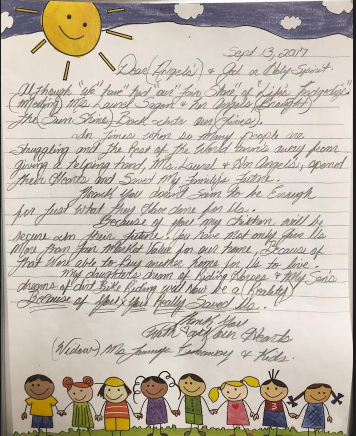 Sept. 13, 2017
Dear (Angels) & God or Holy Spirit
Although "we" have had "our" fair share of "Life's
(meeting) Ms. Laurel & her Angels (Brought)
the (Sun Shine) Back into our (Lives).
In Times when so many people are
struggling and the Rest of the World turns away from
giving a helping hand, Ms. Laurel & Her Angels, opened
their Hearts and Saved My family's Future.
Thank You doesn't seem to be Enough
for just what they have done for Us.
Because of You! My Children will be
secure in their Future. You have Not only give Us
More than fair Market Value for our home, Because of
that We're able to Buy another home for Us to love.
My daughter's dream of Riding Horses & My Son's
dreams of dirt Bike Riding will Now be a (Reality)
Because of You! You Really Saved Us.
Thank You
With Our Hearts
(Widow) Ms. & Kids.
3